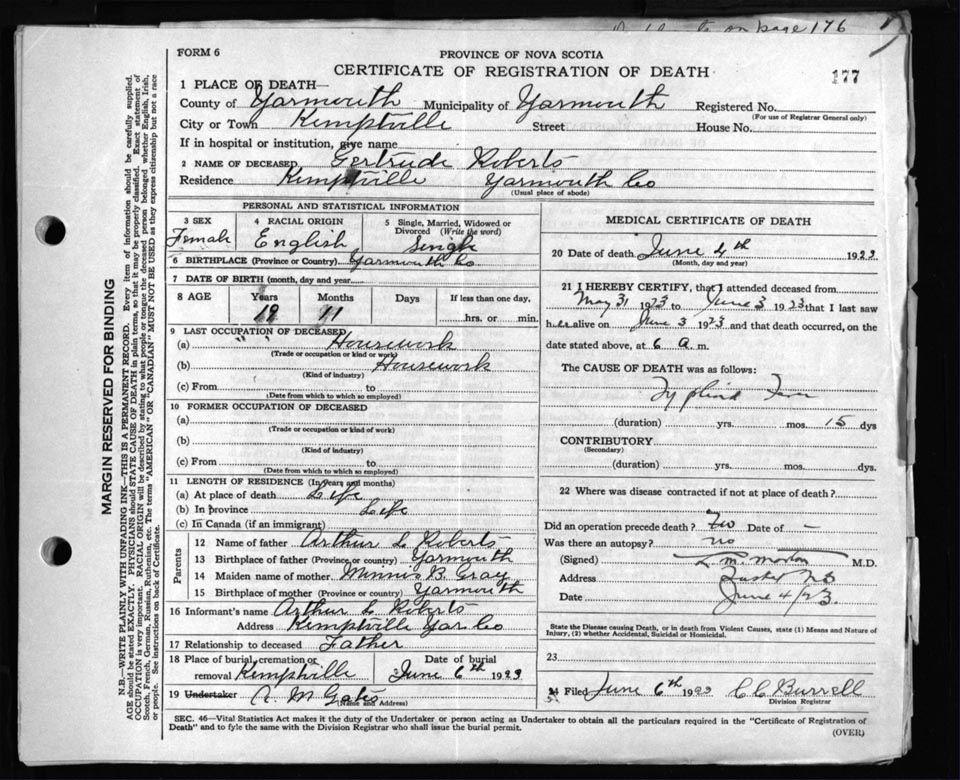 on page 176
FORM 6
PROVINCE OF NOVA SCOTIA
CERTIFICATE OF REGISTRATION OF DEATH
177
1 PLACE OF DEATH—
County of Yarmouth Municipality of Yarmouth Registered No.
(For use of Registrar General only)
City or Town Kemptville Street House No.
If in hospital or institution, give name
2 NAME OF DECEASED Gertrude Roberts
Residence Kemptville Yarmouth Co
(Usual place of abode)
PERSONAL AND STATISTICAL INFORMATION
3 SEX Female
4 RACIAL ORIGIN English
5 Single, Married, Widowed or Divorced (Write the word) Single
6 BIRTHPLACE (Province or Country) Yarmouth Co
7 DATE OF BIRTH (month, day and year)
8 AGE Years Months Days If less than one day,
19 11 hrs. or min.
9 LAST OCCUPATION OF DECEASED
(a) Housework
(Trade or occupation or kind or work)
(b) Housework
(Kind of industry)
(c) From to
(Date from which to which so employed)
10 FORMER OCCUPATION OF DECEASED
(a)
(Trade or occupation or kind of work)
(b)
(Kind of industry)
(c) From to
(Date from which to which so employed)
11 LENGTH OF RESIDENCE (In years and months)
(a) At place of death Life
(b) In province Life
(c) In Canada (if an immigrant)
Parents
12 Name of father Arthur L Roberts
13 Birthplace of father (Province or country) Yarmouth
14 Maiden name of mother Minnie B. Gray
15 Birthplace of mother (Province or country) Yarmouth
16 Informant's name Arthur L Roberts
Address Kemptville Yar Co
17 Relationship to deceased Father
18 Place of burial, cremation or removal Kemptville Date of burial June 6th 1923
19 Undertaker A. M Gates
(Name and Address)
MEDICAL CERTIFICATE OF DEATH
20 Date of death June 4th 1923
(Month, day and year)
21 I HEREBY CERTIFY, that I attended deceased from
May 31 1923 to June 3 1923 that I last saw
her alive on June 3 1923 and that death occurred, on the
date stated above, at 6 a. m.
The CAUSE OF DEATH was as follows:
Typhoid Fever
(duration) yrs. mos. 15 dys
CONTRIBUTORY
(Secondary)
(duration) yrs. mos. dys.
22 Where was disease contracted if not at place of death?
Did an operation precede death? No Date of —
Was there an autopsy? no
(Signed) Morton M.D.
Address NS
Date June 4/23.
State the Disease causing Death, or in death from Violent Causes, state (1) Means and Nature of
Injury, (2) whether Accidental, Suicidal or Homicidal.
23
24 Filed June 6th 1923 C C Burrell
Division Registrar
SEC. 46—Vital Statistics Act makes it the duty of the Undertaker or person acting as Undertaker to obtain all the particulars required in the "Certificate of Registration of
Death" and to fyle the same with the Division Registrar who shall issue the burial permit.
(OVER)
MARGIN RESERVED FOR BINDING
N.B.—WRITE PLAINLY WITH UNFADING INK—THIS IS A PERMANENT RECORD. Every item of information should be carefully supplied.
AGE should be stated EXACTLY. PHYSICIANS should STATE CAUSE OF DEATH in plain terms, so that it may be properly classified. Exact statement of
OCCUPATION is very important. RACIAL ORIGIN will be described by stating to what people or tongue the deceased person belonged whether English, Irish,
Scotch, French, German, Russian, Ruthenian, etc. The terms "AMERICAN" OR "CANADIAN" MUST NOT BE USED as they express citizenship but not a race
or people. See instructions on back of Certificate.